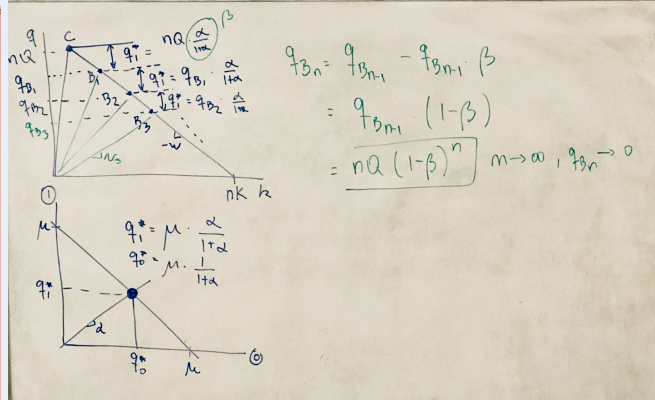 q
nQ
C
q₁* = nQ · α/(1+α) β
q_B₁
B₁
q₁* = q_B₁ · α/(1+α)
q_B₂
B₂
q₁* = q_B₂ · α/(1+α)
q_B₃
B₃
-w
nK k
q_Bₙ = q_Bₙ₋₁ - q_Bₙ₋₁ β
= q_Bₙ₋₁ (1-β)
= nQ (1-β)ⁿ n→∞, q_Bₙ→0
①
μ
q₁* = μ · α/(1+α)
q₀* = μ · 1/(1+α)
q₁*
α
q₀* μ ⓪